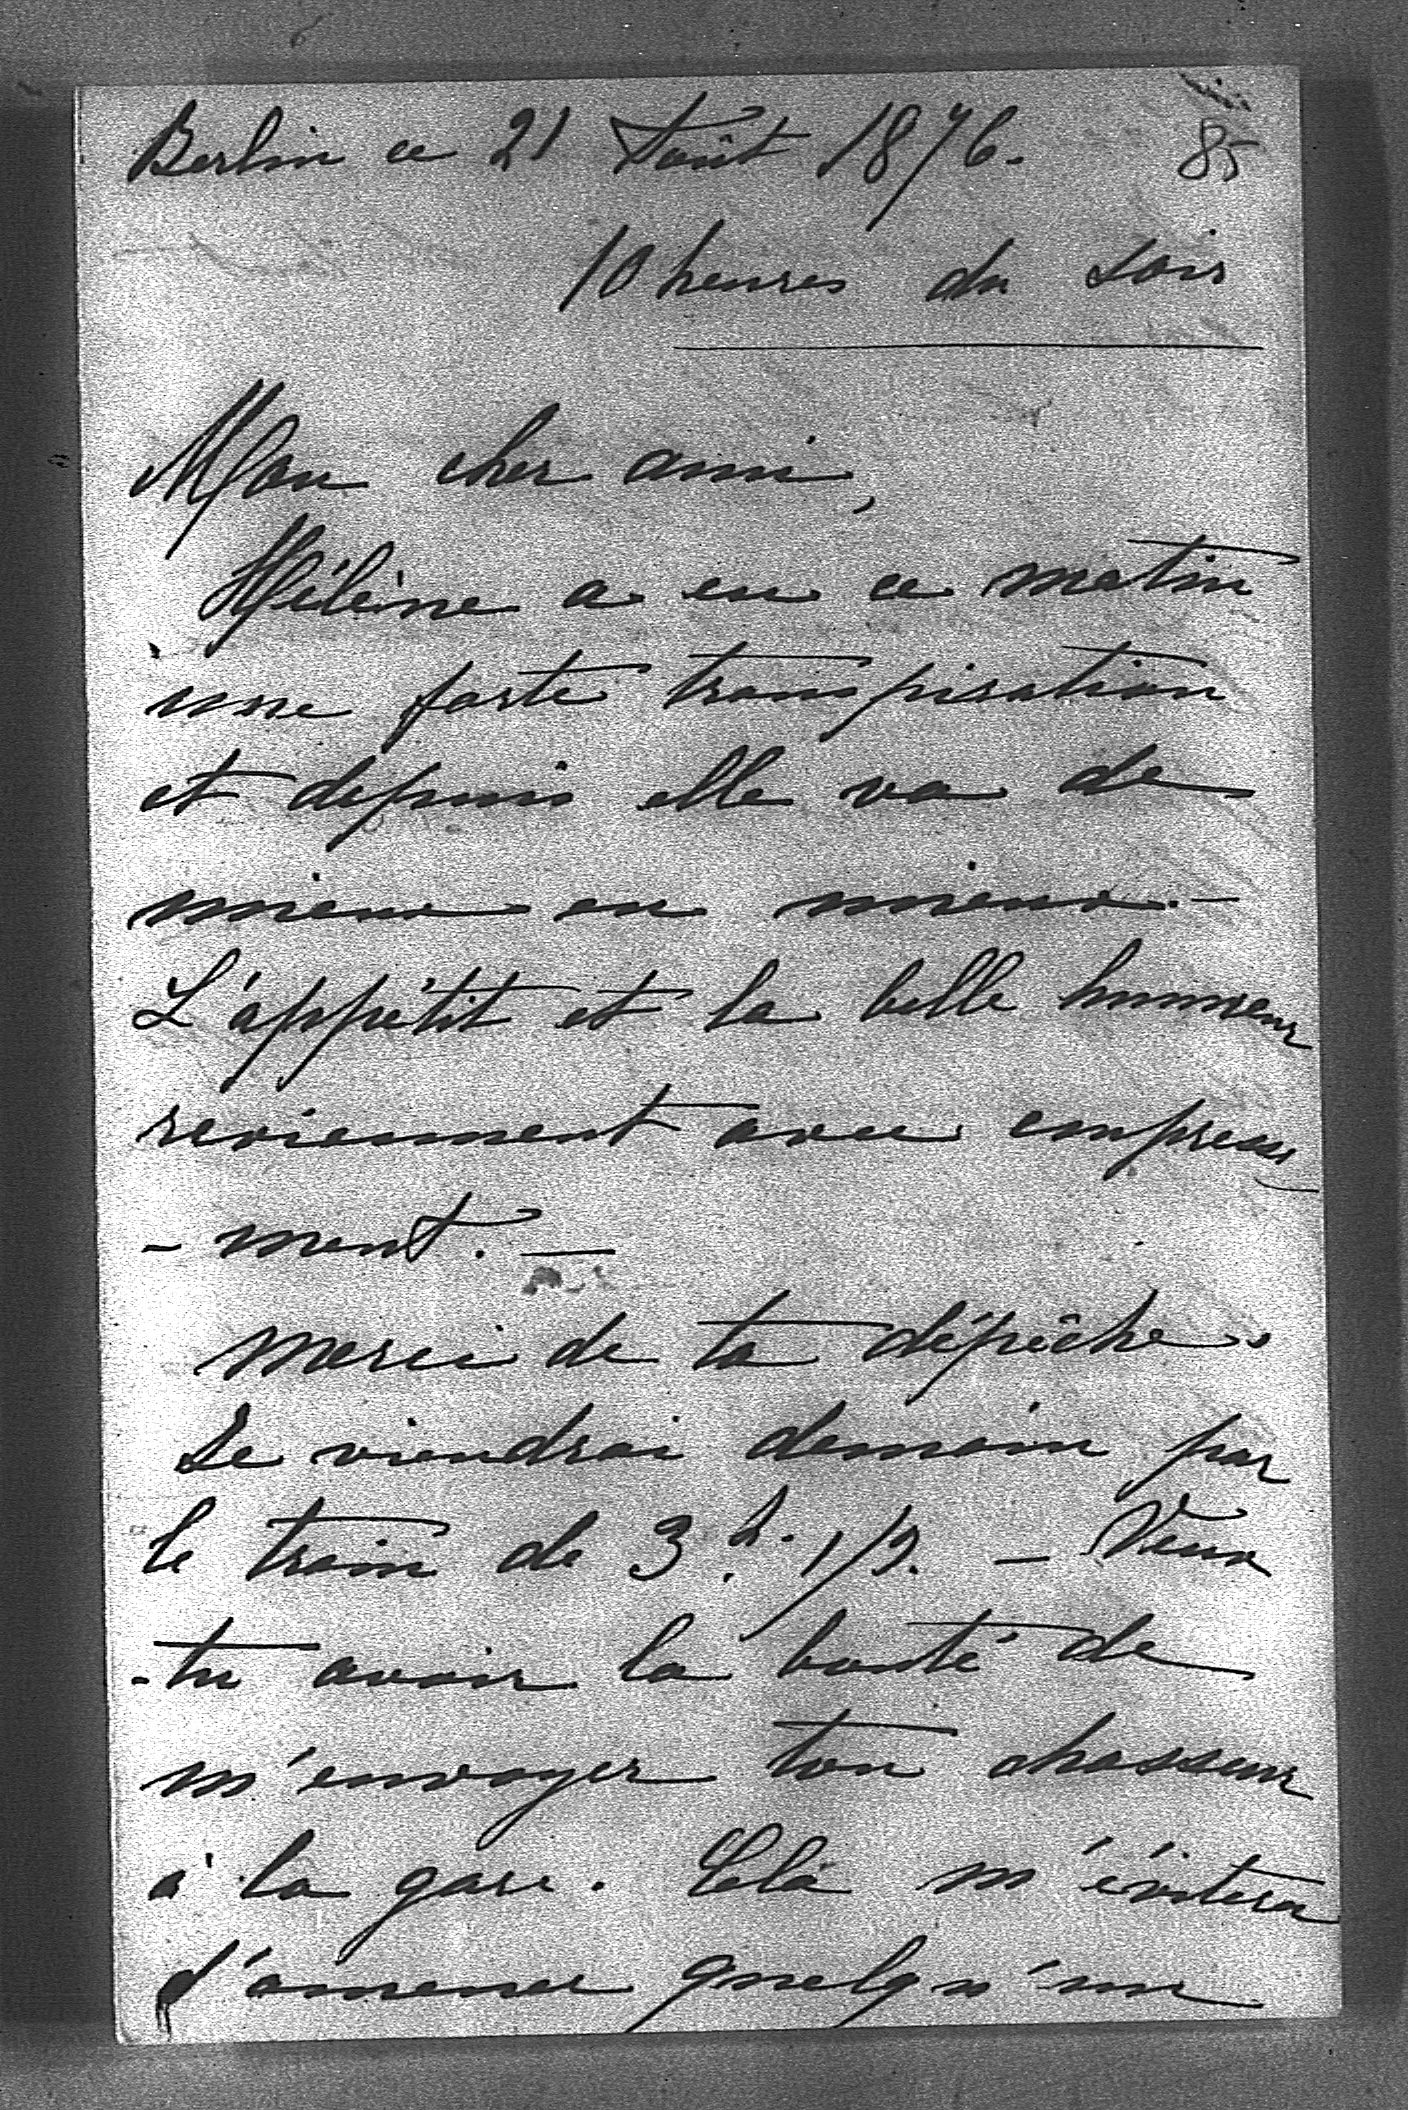 Berlin ce 21 Août 1876.
85
10 heures du soir
Mon cher ami,
Hélène a eu ce matin
une forte transpiration
et depuis elle va de
mieux en mieux. -
L'appétit et la belle humeur
reviennent avec empresse
- ment. -
Merci de ta dépêche.
Je viendrai demain par
le train de 3 h. 1/2. - Veux
- tu avoir la bonté de
m'envoyer ton chasseur
à la gare. Celà m'évitera
d'amener quelqu'un